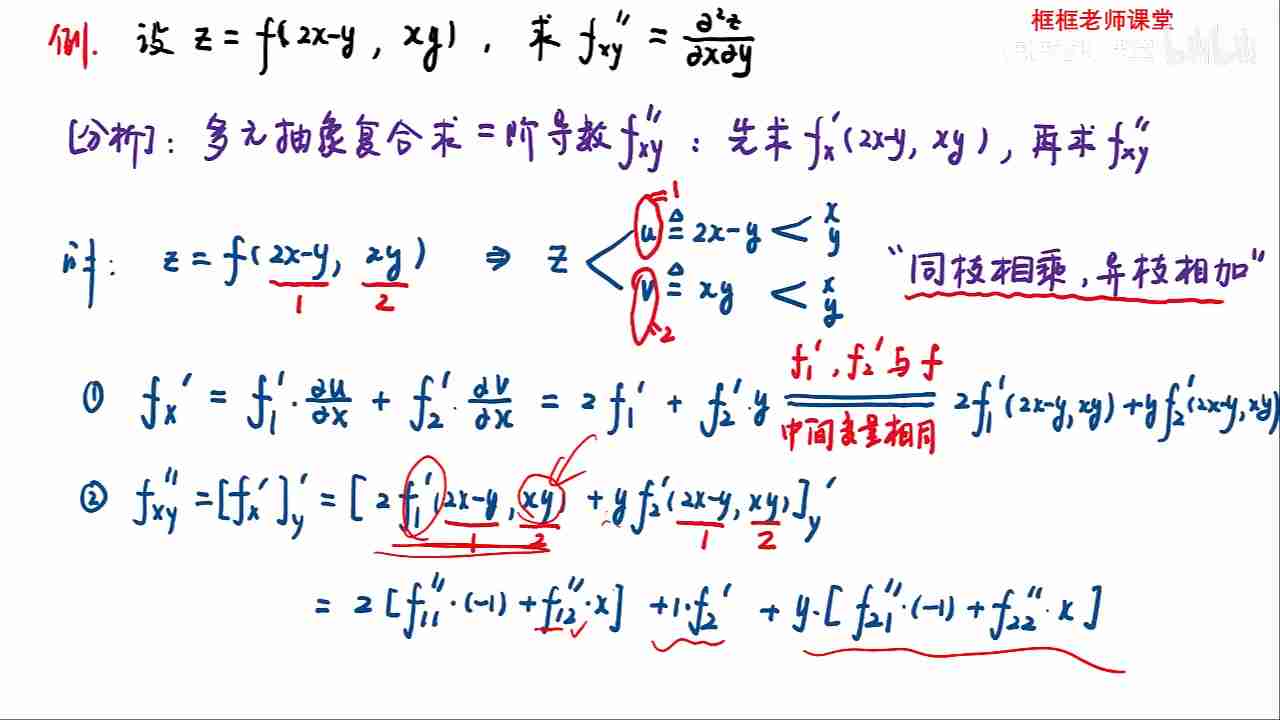 框框老师课堂
例. 设 z = f(2x-y, xy), 求 f''xy = ∂²z/∂x∂y
[分析]: 多元抽象复合求二阶导数 f''xy : 先求 f'x(2x-y, xy), 再求 f''xy
解: z = f(2x-y, xy) ⇒ z < u ≜ 2x-y < x y
1 2 v ≜ xy < x y
1
2
"同枝相乘, 异枝相加"
① fx' = f1'·∂u/∂x + f2'·∂v/∂x = 2f1' + f2'·y ═ 2f1'(2x-y, xy) + yf2'(2x-y, xy)
f1', f2' 与 f
中间变量相同
② f''xy = [fx']'y = [2f1'(2x-y, xy) + yf2'(2x-y, xy)]'y
1 2 1 2
= 2[f11''·(-1) + f12''·x] + 1·f2' + y·[f21''·(-1) + f22''·x]